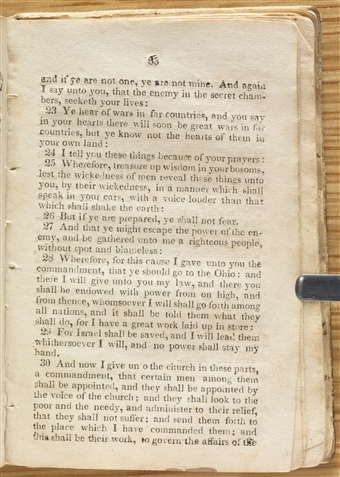 83
and if ye are not one, ye are not mine. And again
I say unto you, that the enemy in the secret cham-
bers, seeketh your lives:
23 Ye hear of wars in far countries, and you say
in your hearts there will soon be great wars in far
countries, but ye know not the hearts of them in
your own land:
24 I tell you these things because of your prayers:
25 Wherefore, treasure up wisdom in your bosoms,
lest the wickedness of men reveal these things unto
you, by their wickedness, in a manner which shall
speak in your ears, with a voice louder than that
which shall shake the earth:
26 But if ye are prepared, ye shall not fear.
27 And that ye might escape the power of the en-
emy, and be gathered unto me a righteous people,
without spot and blameless:
28 Wherefore, for this cause I gave unto you the
commandment, that ye should go to the Ohio: and
there I will give unto you my law, and there you
shall be endowed with power from on high, and
from thence, whomsoever I will shall go forth among
all nations, and it shall be told them what they
shall do, for I have a great work laid up in store:
29 For Israel shall be saved, and I will lead them
whithersoever I will, and no power shall stay my
hand.
30 And now I give un o the church in these parts,
a commandment, that certain men among them
shall be appointed, and they shall be appointed by
the voice of the church; and they shall look to the
poor and the needy, and administer to their relief,
that they shall not suffer; and send them forth to
the place which I have commanded them; and
this shall be their work, to govern the affairs of the